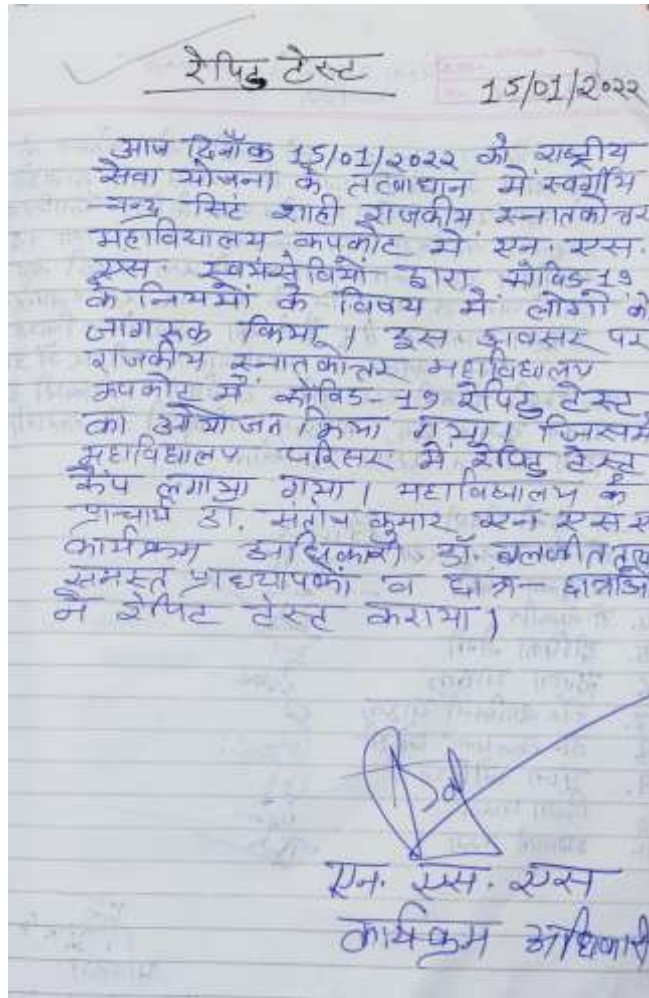 रैपिड टेस्ट
15/01/2022
आज दिनाँक 15/01/2022 को राष्ट्रीय
सेवा योजना के तत्वाधान में स्वर्गीय
चन्द्र सिंह शाही राजकीय स्नातकोत्तर
महाविद्यालय कपकोट में एन. एस.
एस स्वयंसेवियों द्वारा कोविड-19
के नियमों के विषय में लोगों को
जागरूक किया। इस अवसर पर
राजकीय स्नातकोत्तर महाविद्यालय
कपकोट में कोविड-19 रैपिड टेस्ट
का आयोजन किया गया। जिसमें
महाविद्यालय परिसर में रैपिड टेस्ट
कैंप लगाया गया। महाविद्यालय के
प्राचार्य डा. संतोष कुमार एन एस स
कार्यक्रम अधिकारी डॉ.
समस्त प्राध्यापकों व छात्र-छात्राओं
ने रैपिट टेस्ट कराया।
एन. एस. एस
कार्यक्रम अधिकारी